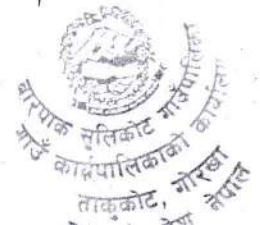 बारपाक सुलिकोट गाउँपालिका
गाउँ कार्यपालिकाको कार्यालय
ताककोट, गोरखा
नेपाल